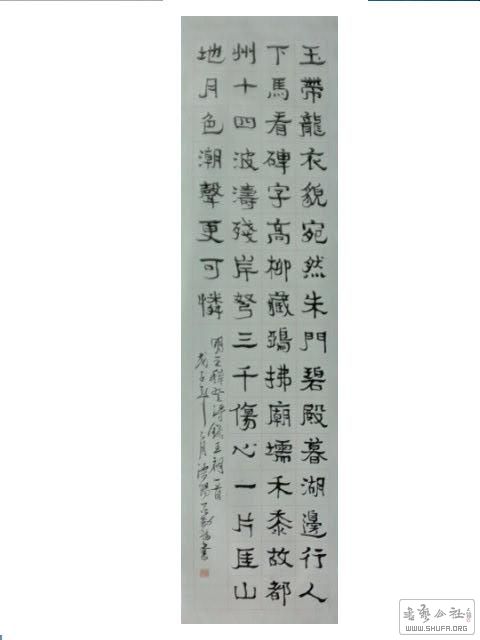 玉帶龍衣貌宛然朱門碧殿暮湖邊行人
下馬看碑字高柳藏鴉拂廟壖禾黍故都
州十四波濤殘岸弩三千傷心一片匡山
地月色潮聲更可憐
明王穉登詩錢王祠一首
月書
書藝公社
WWW.SHUFA.ORG